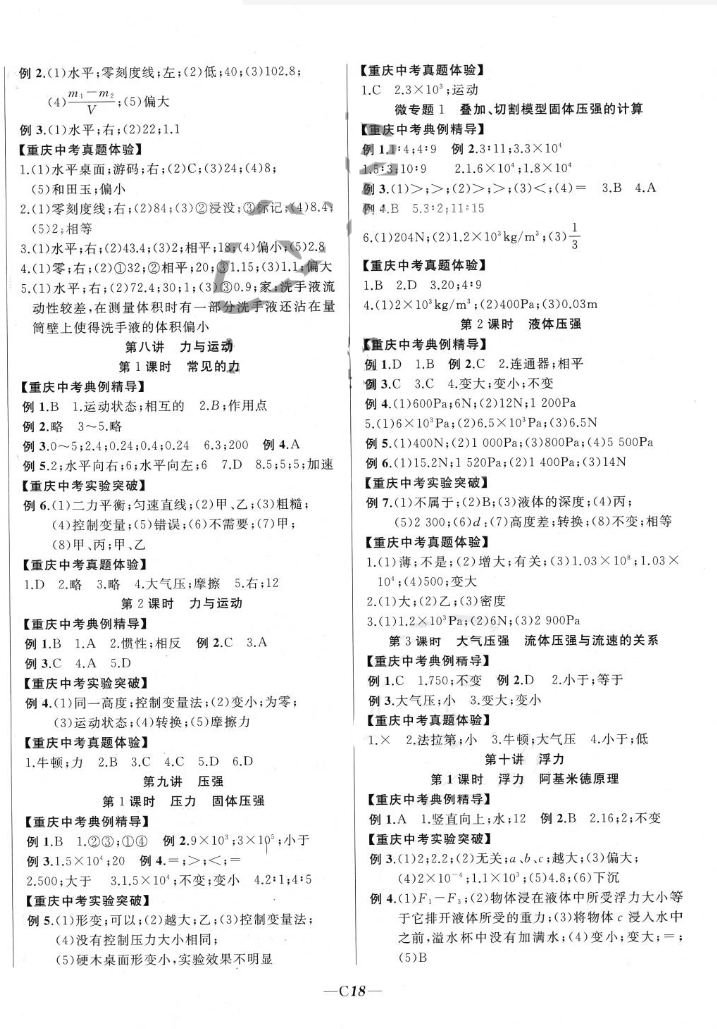 例 2.(1)水平;零刻度线;左;(2)低;40;(3)102.8;
(4)(m₁-m₂)/V;(5)偏大
例 3.(1)水平;右;(2)22;1.1
【重庆中考真题体验】
1.(1)水平桌面;游码;右;(2)C;(3)24;(4)8;
(5)和田玉;偏小
2.(1)零刻度线;右;(2)84;(3)②浸没;③标记;(4)8.4;
(5)2;相等
3.(1)水平;右;(2)43.4;(3)2;相平;18;(4)偏小;(5)2.8
4.(1)零;右;(2)①32;②相平;20;③1.15;(3)1.1;偏大
5.(1)水平;右;(2)72.4;30;1;(3)③0.9;家;洗手液流
动性较差,在测量体积时有一部分洗手液还沾在量
筒壁上使得洗手液的体积偏小
第八讲 力与运动
第1课时 常见的力
【重庆中考典例精导】
例 1.B 1.运动状态;相互的 2.B;作用点
例 2.略 3～5.略
例 3.0～5;2.4;0.24;0.4;0.24 6.3;200 例 4.A
例 5.2;水平向右;6;水平向左;6 7.D 8.5;5;5;加速
【重庆中考实验突破】
例 6.(1)二力平衡;匀速直线;(2)甲、乙;(3)粗糙;
(4)控制变量;(5)错误;(6)不需要;(7)甲;
(8)甲、丙;甲、乙
【重庆中考真题体验】
1.D 2.略 3.略 4.大气压;摩擦 5.右;12
第2课时 力与运动
【重庆中考典例精导】
例 1.B 1.A 2.惯性;相反 例 2.C 3.A
例 3.C 4.A 5.D
【重庆中考实验突破】
例 4.(1)同一高度;控制变量法;(2)变小;为零;
(3)运动状态;(4)转换;(5)摩擦力
【重庆中考真题体验】
1.牛顿;力 2.B 3.C 4.C 5.D 6.D
第九讲 压强
第1课时 压力 固体压强
【重庆中考典例精导】
例 1.B 1.②③;①④ 例 2.9×10³;3×10⁵;小于
例 3.1.5×10⁴;20 例 4.=;>;<;=
2.500;大于 3.1.5×10⁴;不变;变小 4.2∶1;4∶5
【重庆中考实验突破】
例 5.(1)形变;可以;(2)越大;乙;(3)控制变量法;
(4)没有控制压力大小相同;
(5)硬木桌面形变小,实验效果不明显
【重庆中考真题体验】
1.C 2.3×10³;运动
微专题1 叠加、切割模型固体压强的计算
【重庆中考典例精导】
例 1.1∶4;4∶9 例 2.3∶11;3.3×10⁴
1.5∶3;10∶9 2.1.6×10⁴;1.8×10⁴
例 3.(1)>;>;(2)>;>;(3)<;(4)= 3.B 4.A
例 4.B 5.3∶2;11∶15
6.(1)204N;(2)1.2×10³kg/m³;(3)1/3
【重庆中考真题体验】
1.B 2.D 3.20;4∶9
4.(1)2×10³kg/m³;(2)400Pa;(3)0.03m
第2课时 液体压强
【重庆中考典例精导】
例 1.D 1.B 例 2.C 2.连通器;相平
例 3.C 3.C 4.变大;变小;不变
例 4.(1)600Pa;6N;(2)12N;1 200Pa
5.(1)6×10³Pa;(2)6.5×10³Pa;(3)6.5N
例 5.(1)400N;(2)1 000Pa;(3)800Pa;(4)5 500Pa
例 6.(1)15.2N;1 520Pa;(2)1 400Pa;(3)14N
【重庆中考实验突破】
例 7.(1)不属于;(2)B;(3)液体的深度;(4)丙;
(5)2 300;(6)d;(7)高度差;转换;(8)不变;相等
【重庆中考真题体验】
1.(1)薄;不是;(2)增大;有关;(3)1.03×10⁸;1.03×
10⁴;(4)500;变大
2.(1)大;(2)乙;(3)密度
3.(1)1.2×10³Pa;(2)6N;(3)2 900Pa
第3课时 大气压强 流体压强与流速的关系
【重庆中考典例精导】
例 1.C 1.750;不变 例 2.D 2.小于;等于
例 3.大气压;小 3.变大;变小
【重庆中考真题体验】
1.× 2.法拉第;小 3.牛顿;大气压 4.小于;低
第十讲 浮力
第1课时 浮力 阿基米德原理
【重庆中考典例精导】
例 1.A 1.竖直向上;水;12 例 2.B 2.16;2;不变
【重庆中考实验突破】
例 3.(1)2;2.2;(2)无关;a、b、c;越大;(3)偏大;
(4)2×10⁻⁴;1.1×10³;(5)4.8;(6)下沉
例 4.(1)F₁-F₃;(2)物体浸在液体中所受浮力大小等
于它排开液体所受的重力;(3)将物体 c 浸入水中
之前,溢水杯中没有加满水;(4)变小;变大;=;
(5)B
—C18—